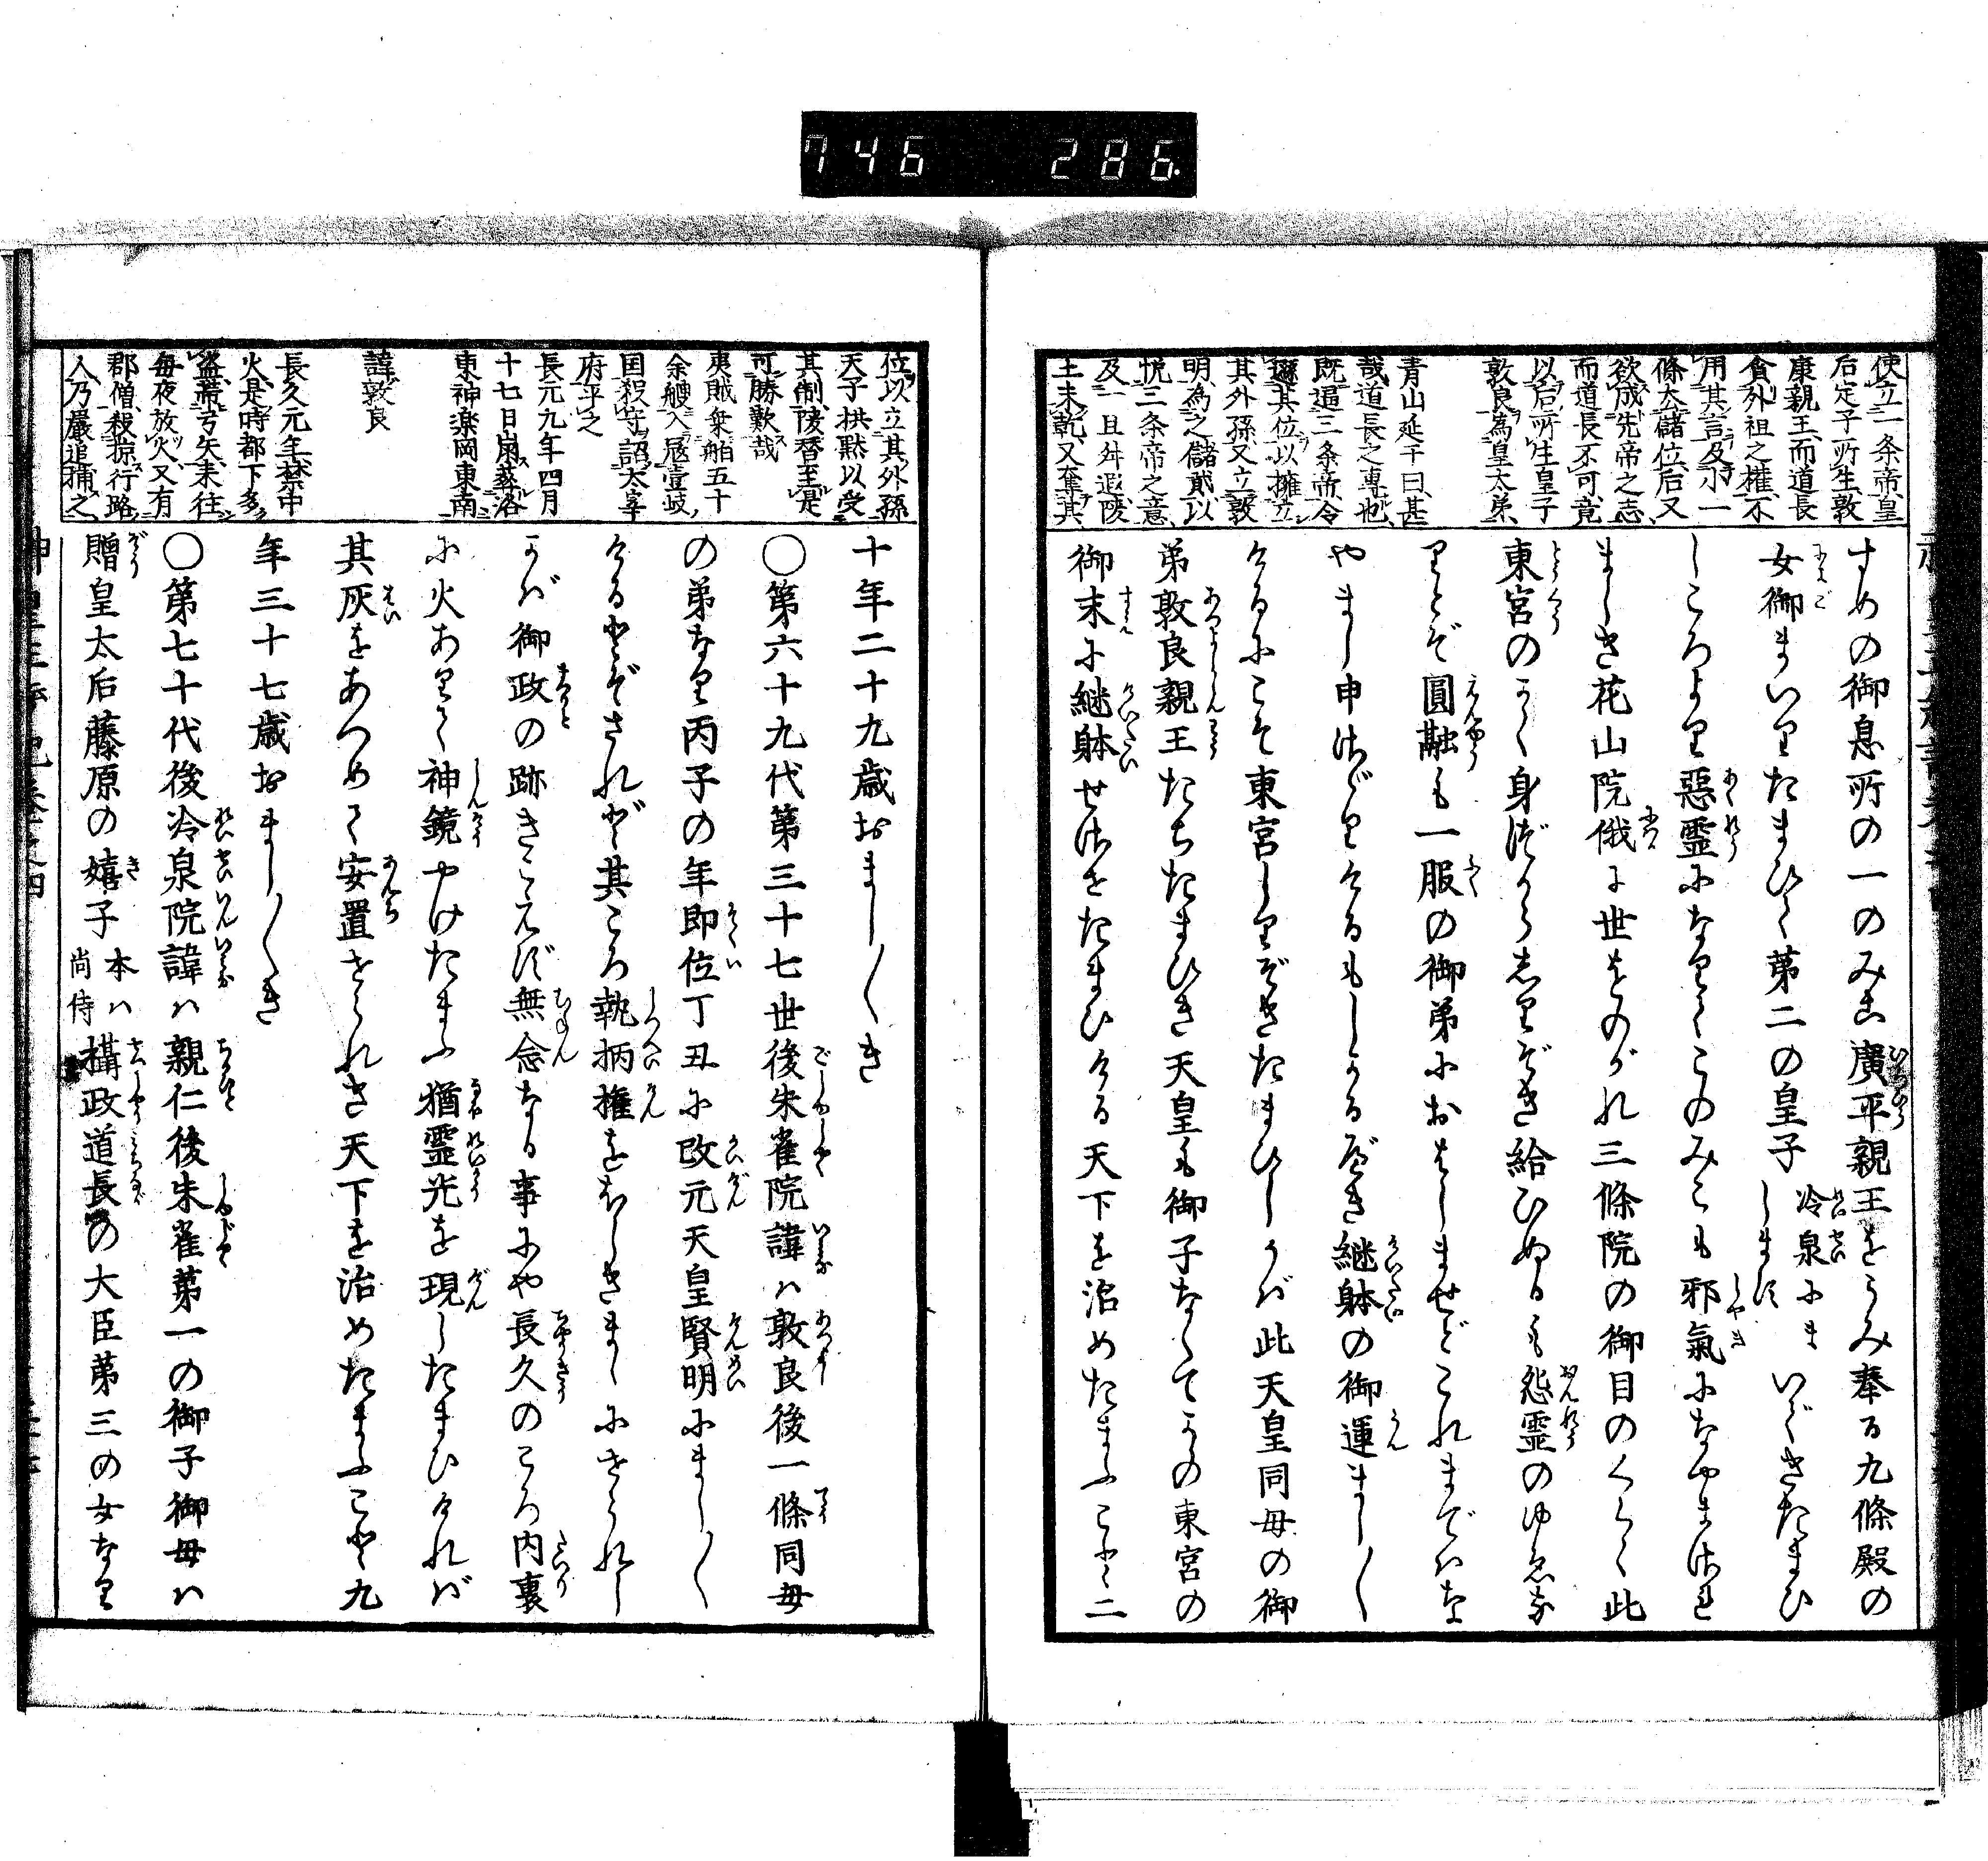 746 286.
使立一条帝皇
后定子所生敦
康親王而道長
貪外祖之權不
用其言及小一
條太儲位后又
欲成先帝之志
而道長不可竟
以后所生皇子
敦良為皇太弟
青山延于曰甚
哉道長之專也
既逼三条帝令
遜其位以擁立
其外孫又立敦
明為之儲貳以
悦三条帝之意
及一旦舛遐陵
土未乾又奪其
すめの御息所の一のみこ廣平親王をうみ奉る九條殿の
女御まいりたまひて第二の皇子冷泉にましますいできたまひ
しころより惡霊になりてこのみこも邪氣になやまされ
ましき花山院俄に世をのがれ三條院の御目のくらく此
東宮のかく身づからしりぞき給ひぬるも怨霊のゆゑな
りとぞ圓融も一服の御弟におはしませどこれまではな
やまし申さゞりけるもしかるべき継躰の御運まし〳〵
けるにこそ東宮しりぞきたまひしかば此天皇同母の御
弟敦良親王たちたまひき天皇も御子なくてかの東宮の
御末に継躰せさせたまひける天下を治めたまふこと二
位以立其外孫
天子拱黙以受
其制陵替至是
可勝歎哉
夷賊乗舶五十
余艘入冦壹岐
囯殺守詔太宰
府平之
長元九年四月
十七日崩葬洛
東神楽岡東南
諱敦良
長久元年禁中
火是時都下多
盗帯弓矢来往
毎夜放火又有
郡僧殺掠行路
人乃嚴追捕之
十年二十九歳おまし〳〵き
〇第六十九代第三十七世後朱雀院諱ハ敦良後一條同母
の弟なり丙子の年即位丁丑に改元天皇賢明にまし〳〵
けるとぞされど其ころ執柄権をほしきまゝにせられし
かば御政の跡きこえず無念なる事にや長久のころ内裏
に火ありて神鏡やけたまふ猶霊光を現したまひければ
其灰をあつめて安置せられき天下を治めたまふこと九
年三十七歳おまし〳〵き
〇第七十代後冷泉院諱ハ親仁後朱雀第一の御子御母ハ
贈皇太后藤原の嬉子本ハ尚侍攝政道長の大臣第三の女なり